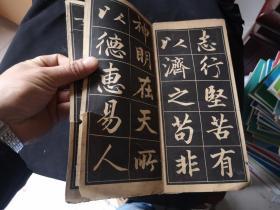 志行堅苦有
以濟之苟非
神明在天所
以德惠易人